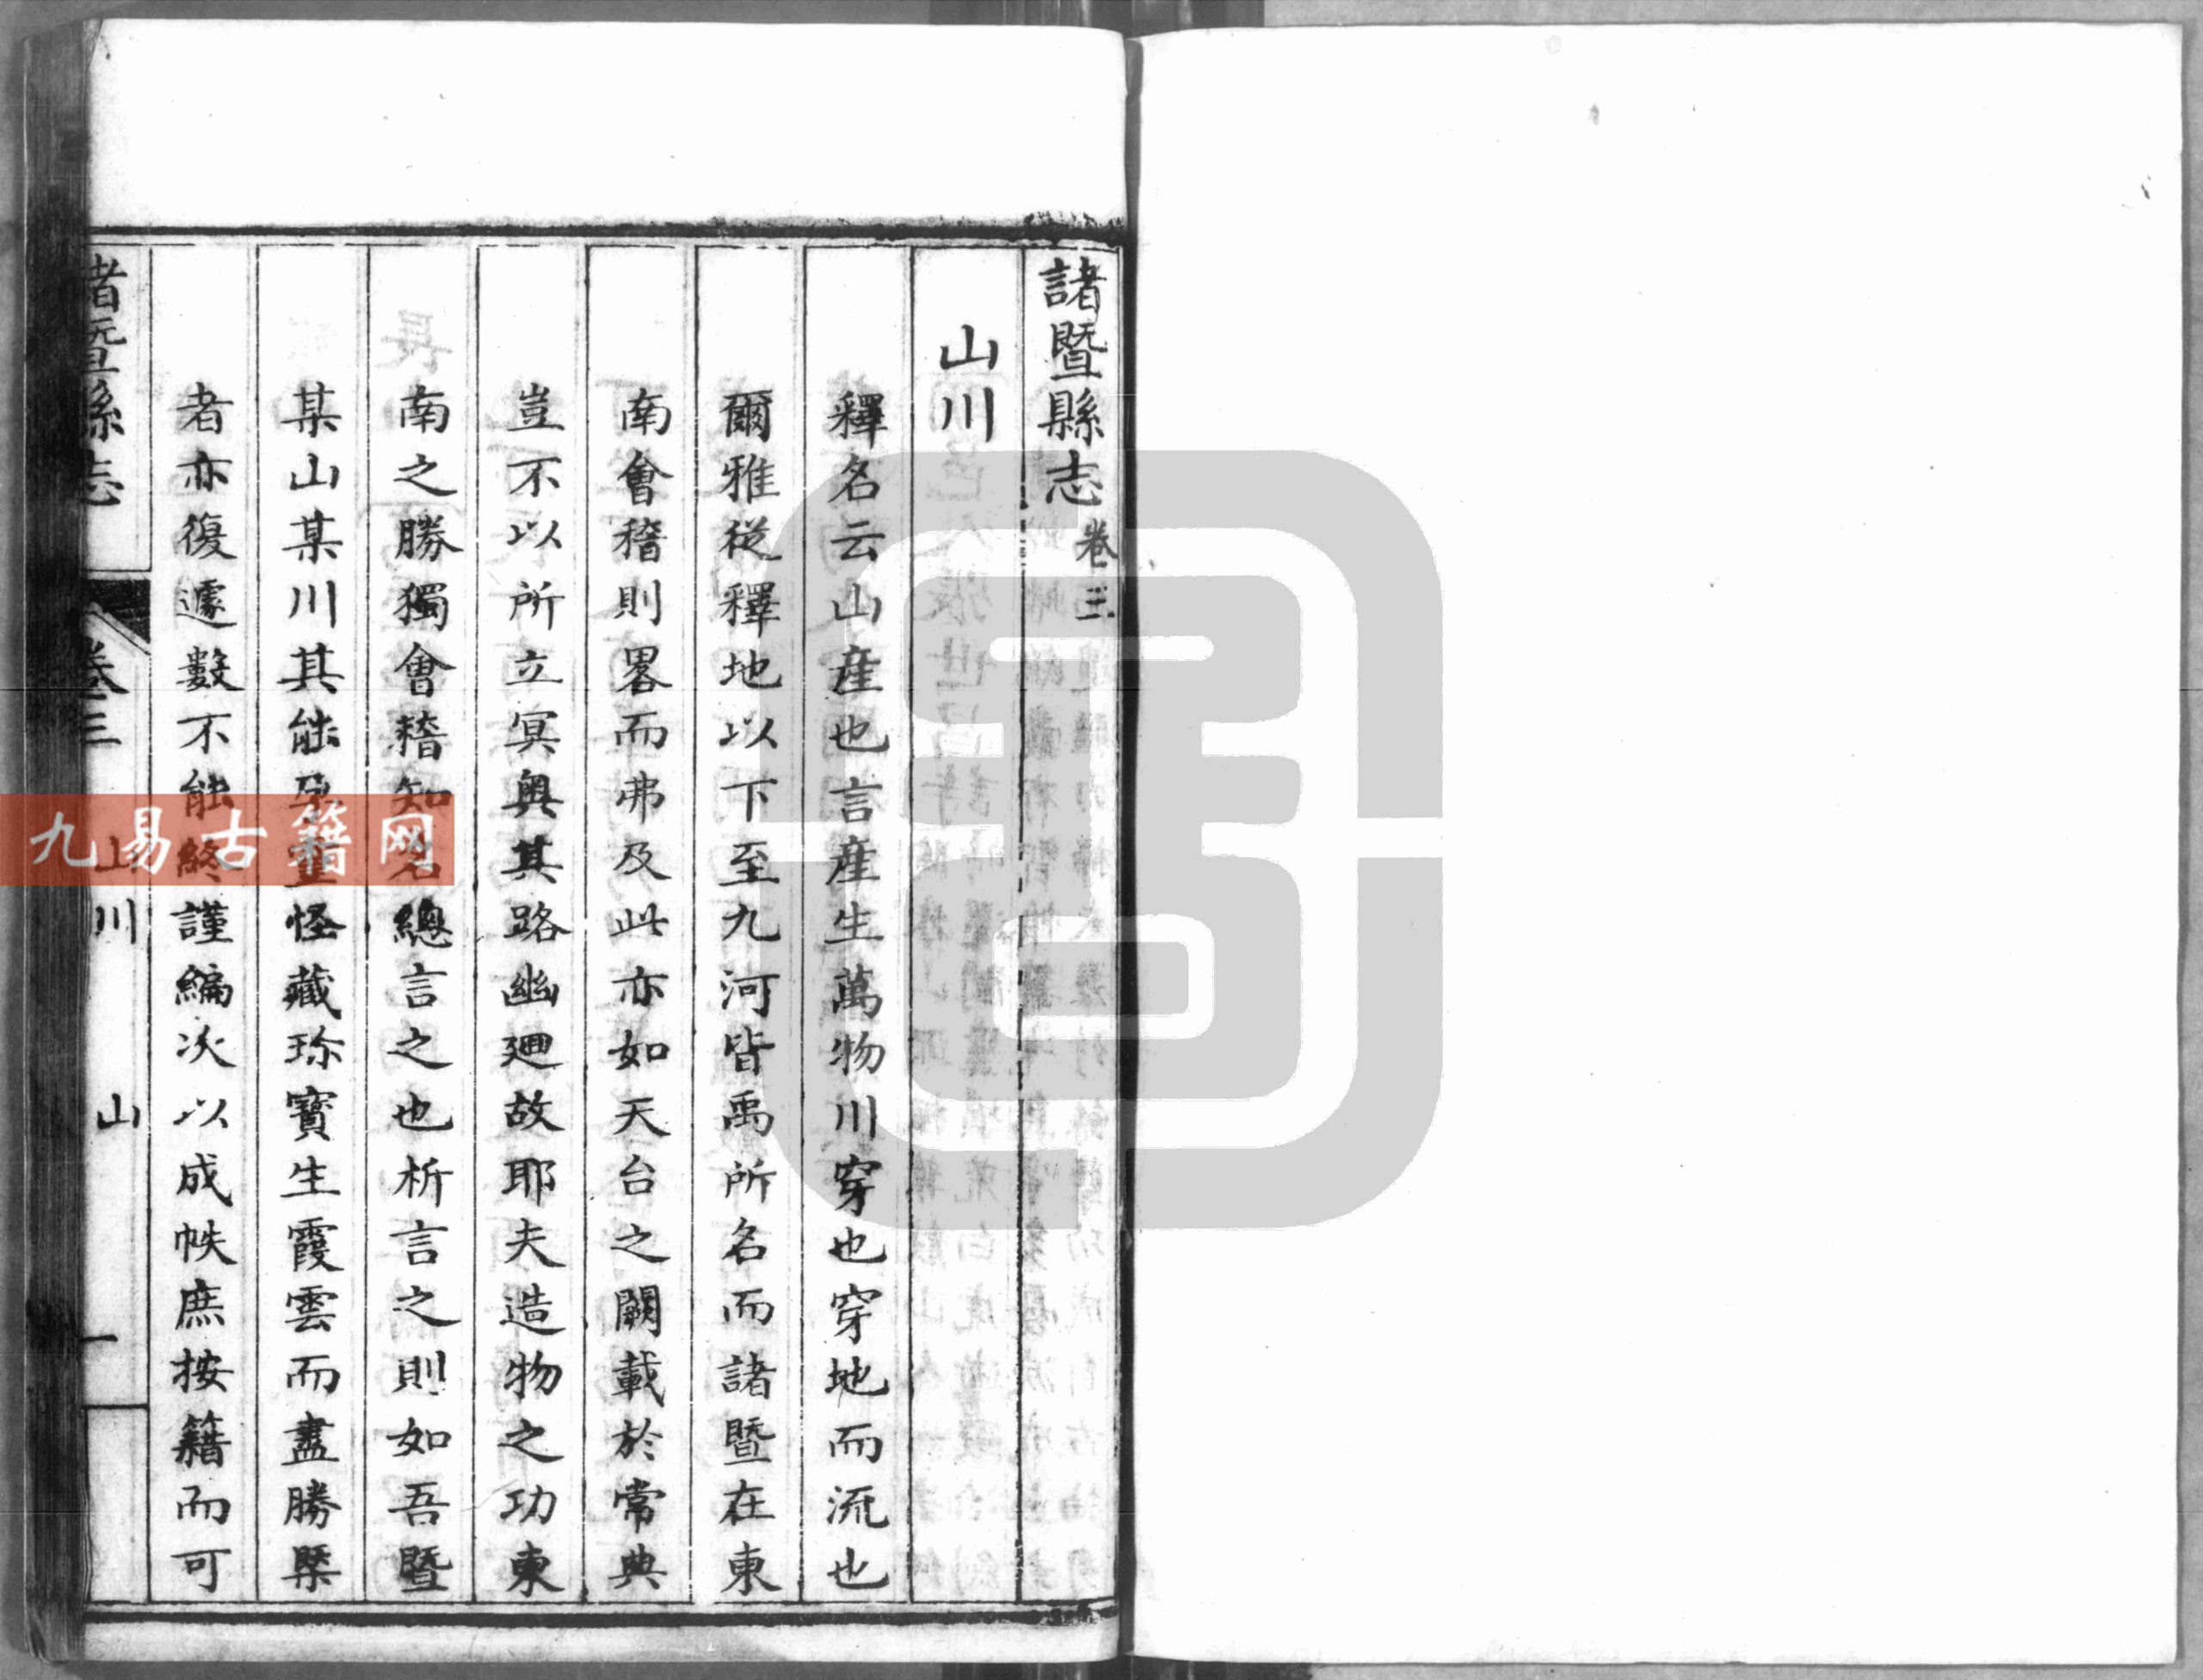 諸暨縣志 卷三
山川
釋名云山産也言産生萬物川穿也穿地而流也
爾雅從釋地以下至九河皆禹所名而諸暨在東
南會稽則畧而弗及此亦如天台之闕載於常典
豈不以所立冥奥其路幽迴故耶夫造物之功東
南之勝獨會稽知名總言之也析言之則如吾暨
某山某川其能孕靈怪藏珍寶生霞雲而盡勝槩
者亦復遽數不能終謹編次以成帙庶按籍而可
諸暨縣志 卷三 山川 山 一
九易古籍网